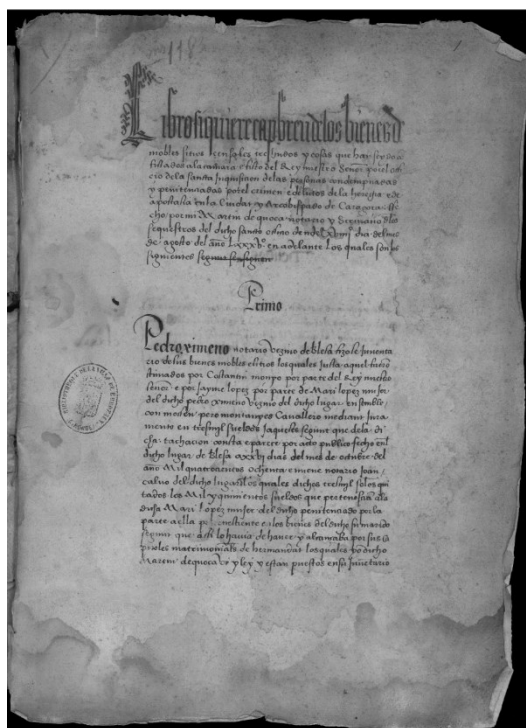 118
Libro siquiere capbreu de los bienes
mobles sitios censales trehudos y cosas que han seydo
fiscados a la camara e fisco del Rey nuestro Señor por el
cio de la santa Inquisicion de las personas condempnadas
y penitenciadas por el crimen e delictos de la heregia e de
apostasia en la Ciudat y Arcebispado de Caragoça
cho por mi Martin de quoca notario y de los
sequestros del dicho santo officio dia del mes
de agosto del año LXXXV en adelante Los quales son los
siguientes
Primo
Pedro ximeno notario vezino de blesa fizole Inventa
rio de sus bienes mobles e sitios los quales justa aquel fueron
stimados por Costantin monyo por parte del Rey nuestro
señor e por Jayme lopez por parte de Mari lopez muller
del dicho pedro ximeno vezino del dicho lugar ensemble
con mosen pero montanyes Cavallero mediant jura
mento en tres mil sueldos jaqueses segunt que de la di
cha tachacion consta e parece por acto publico fecho en el
dicho lugar de blesa a XXVI dias del mes de octubre del
año Mil quatrozientos ochenta e nueve notario Joan
calvo del dicho lugar los quales dichos tres mil sueldos qui
tados los Mil y quinientos sueldos que pertenescian a la
dicha Mari lopez muller del dicho penitenciado por la
parte a ella pertenesciente en los bienes del dicho su marido
segunt que assi lo havia de haver y alcançaba por sus ca
pitoles matrimoniales de hermandat los quales yo dicho
Martin de quoca vi y ley y estan puestos en su Inventario